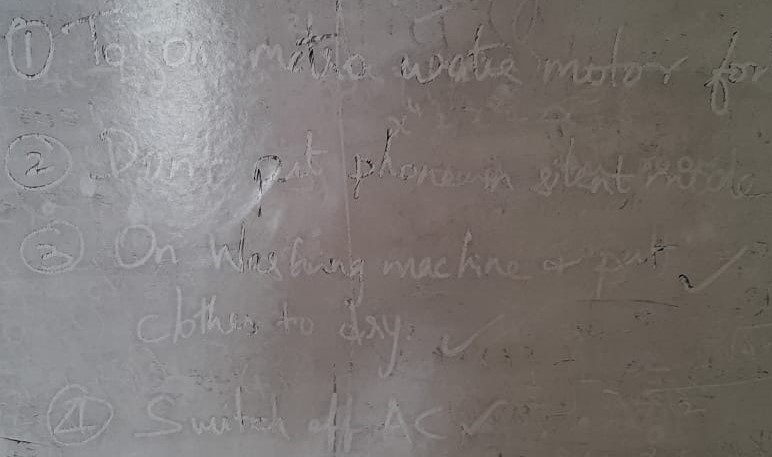 ① To on metro water motor for
② Don't put phone in silent mode
③ On Washing machine & put ✓
clothes to dry. ✓
④ Switch off AC ✓